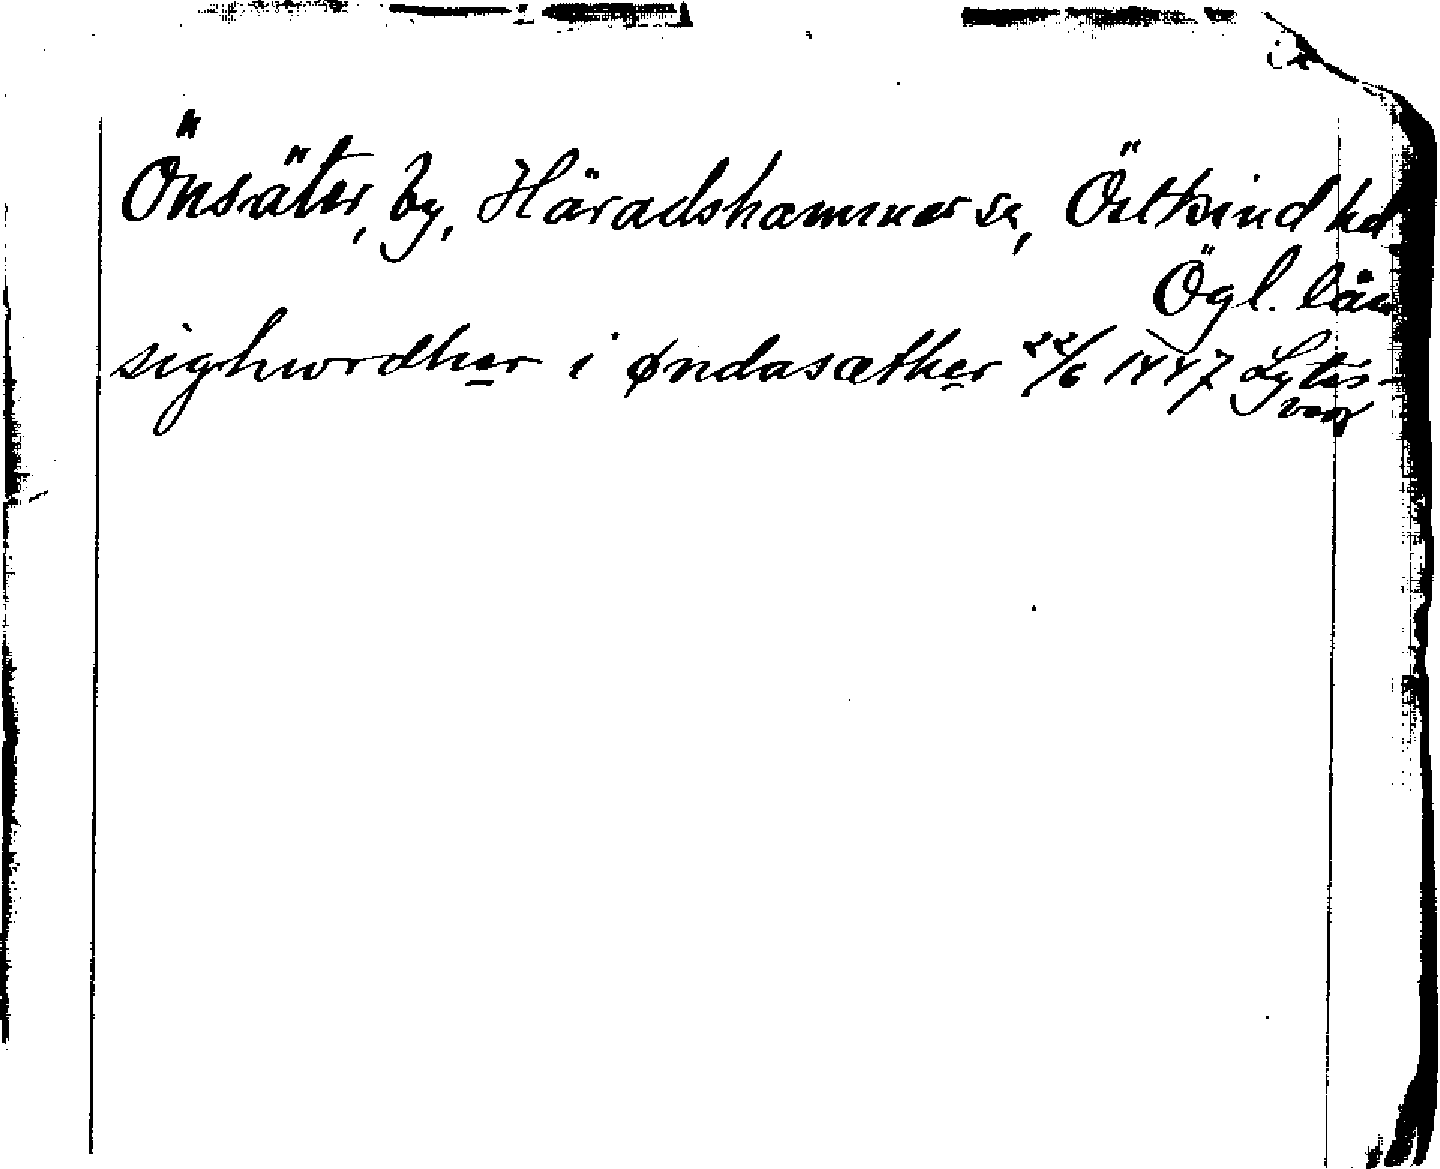 Önsäter, by, Häradshammar sn, Östkind hd
Ögl. län
sighwrdher i øndasæther 22/6 1447